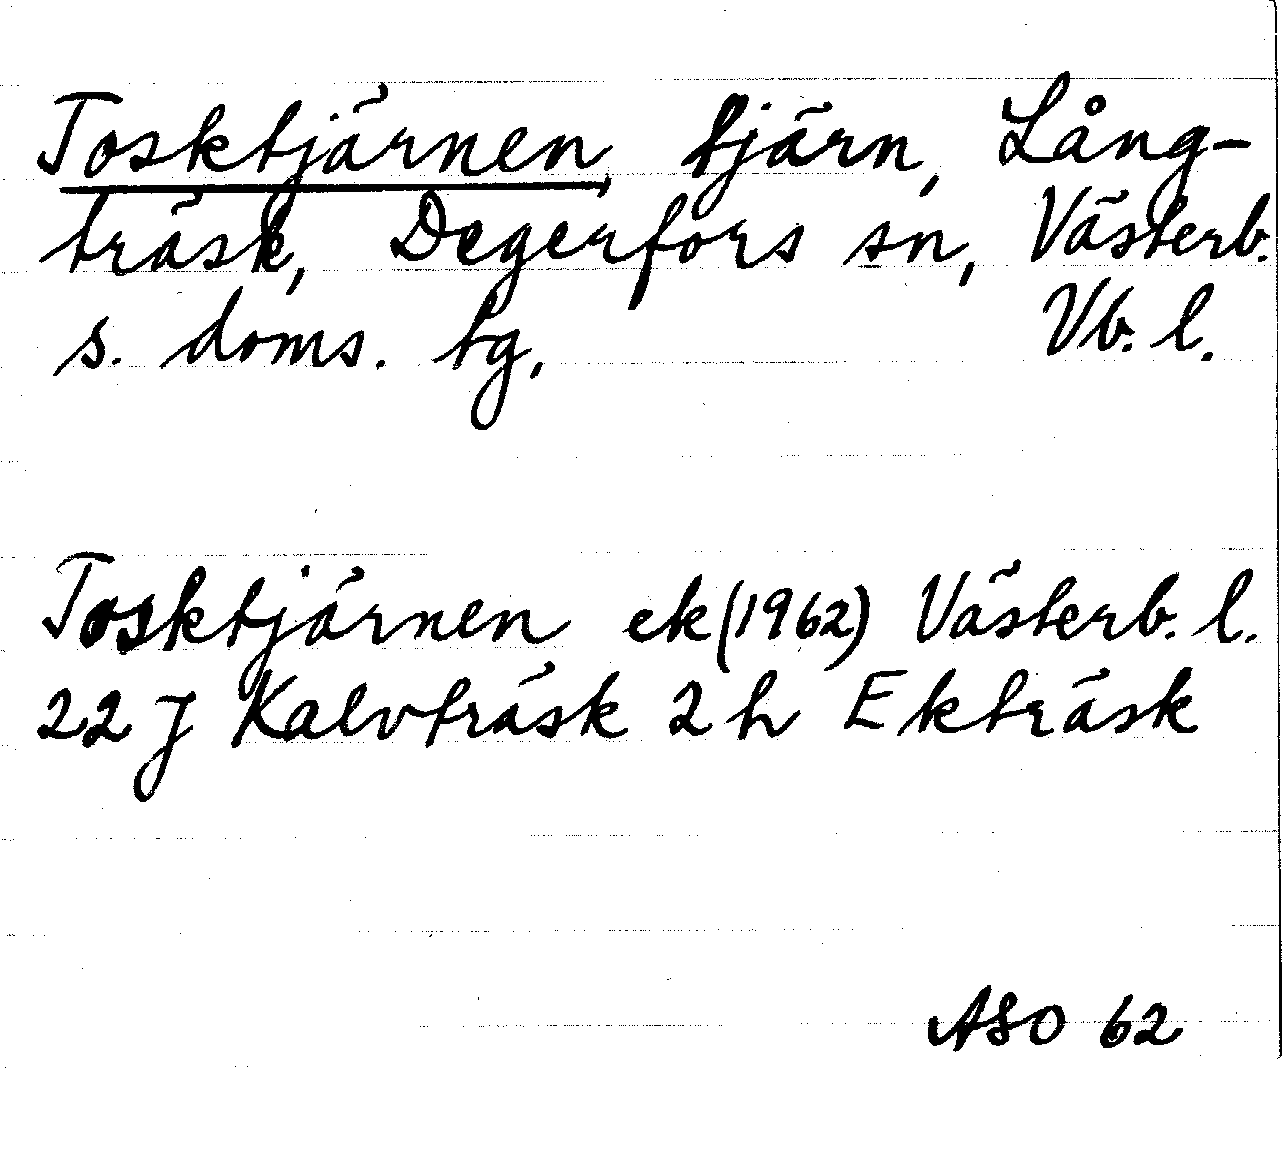 Tosktjärnen, tjärn, Lång-
träsk, Degerfors sn, Västerb.
s. doms. tg, Vb. l.
Tosktjärnen ek (1962) Västerb. l.
22 J Kalvträsk 2 h Ekträsk
ASO 62